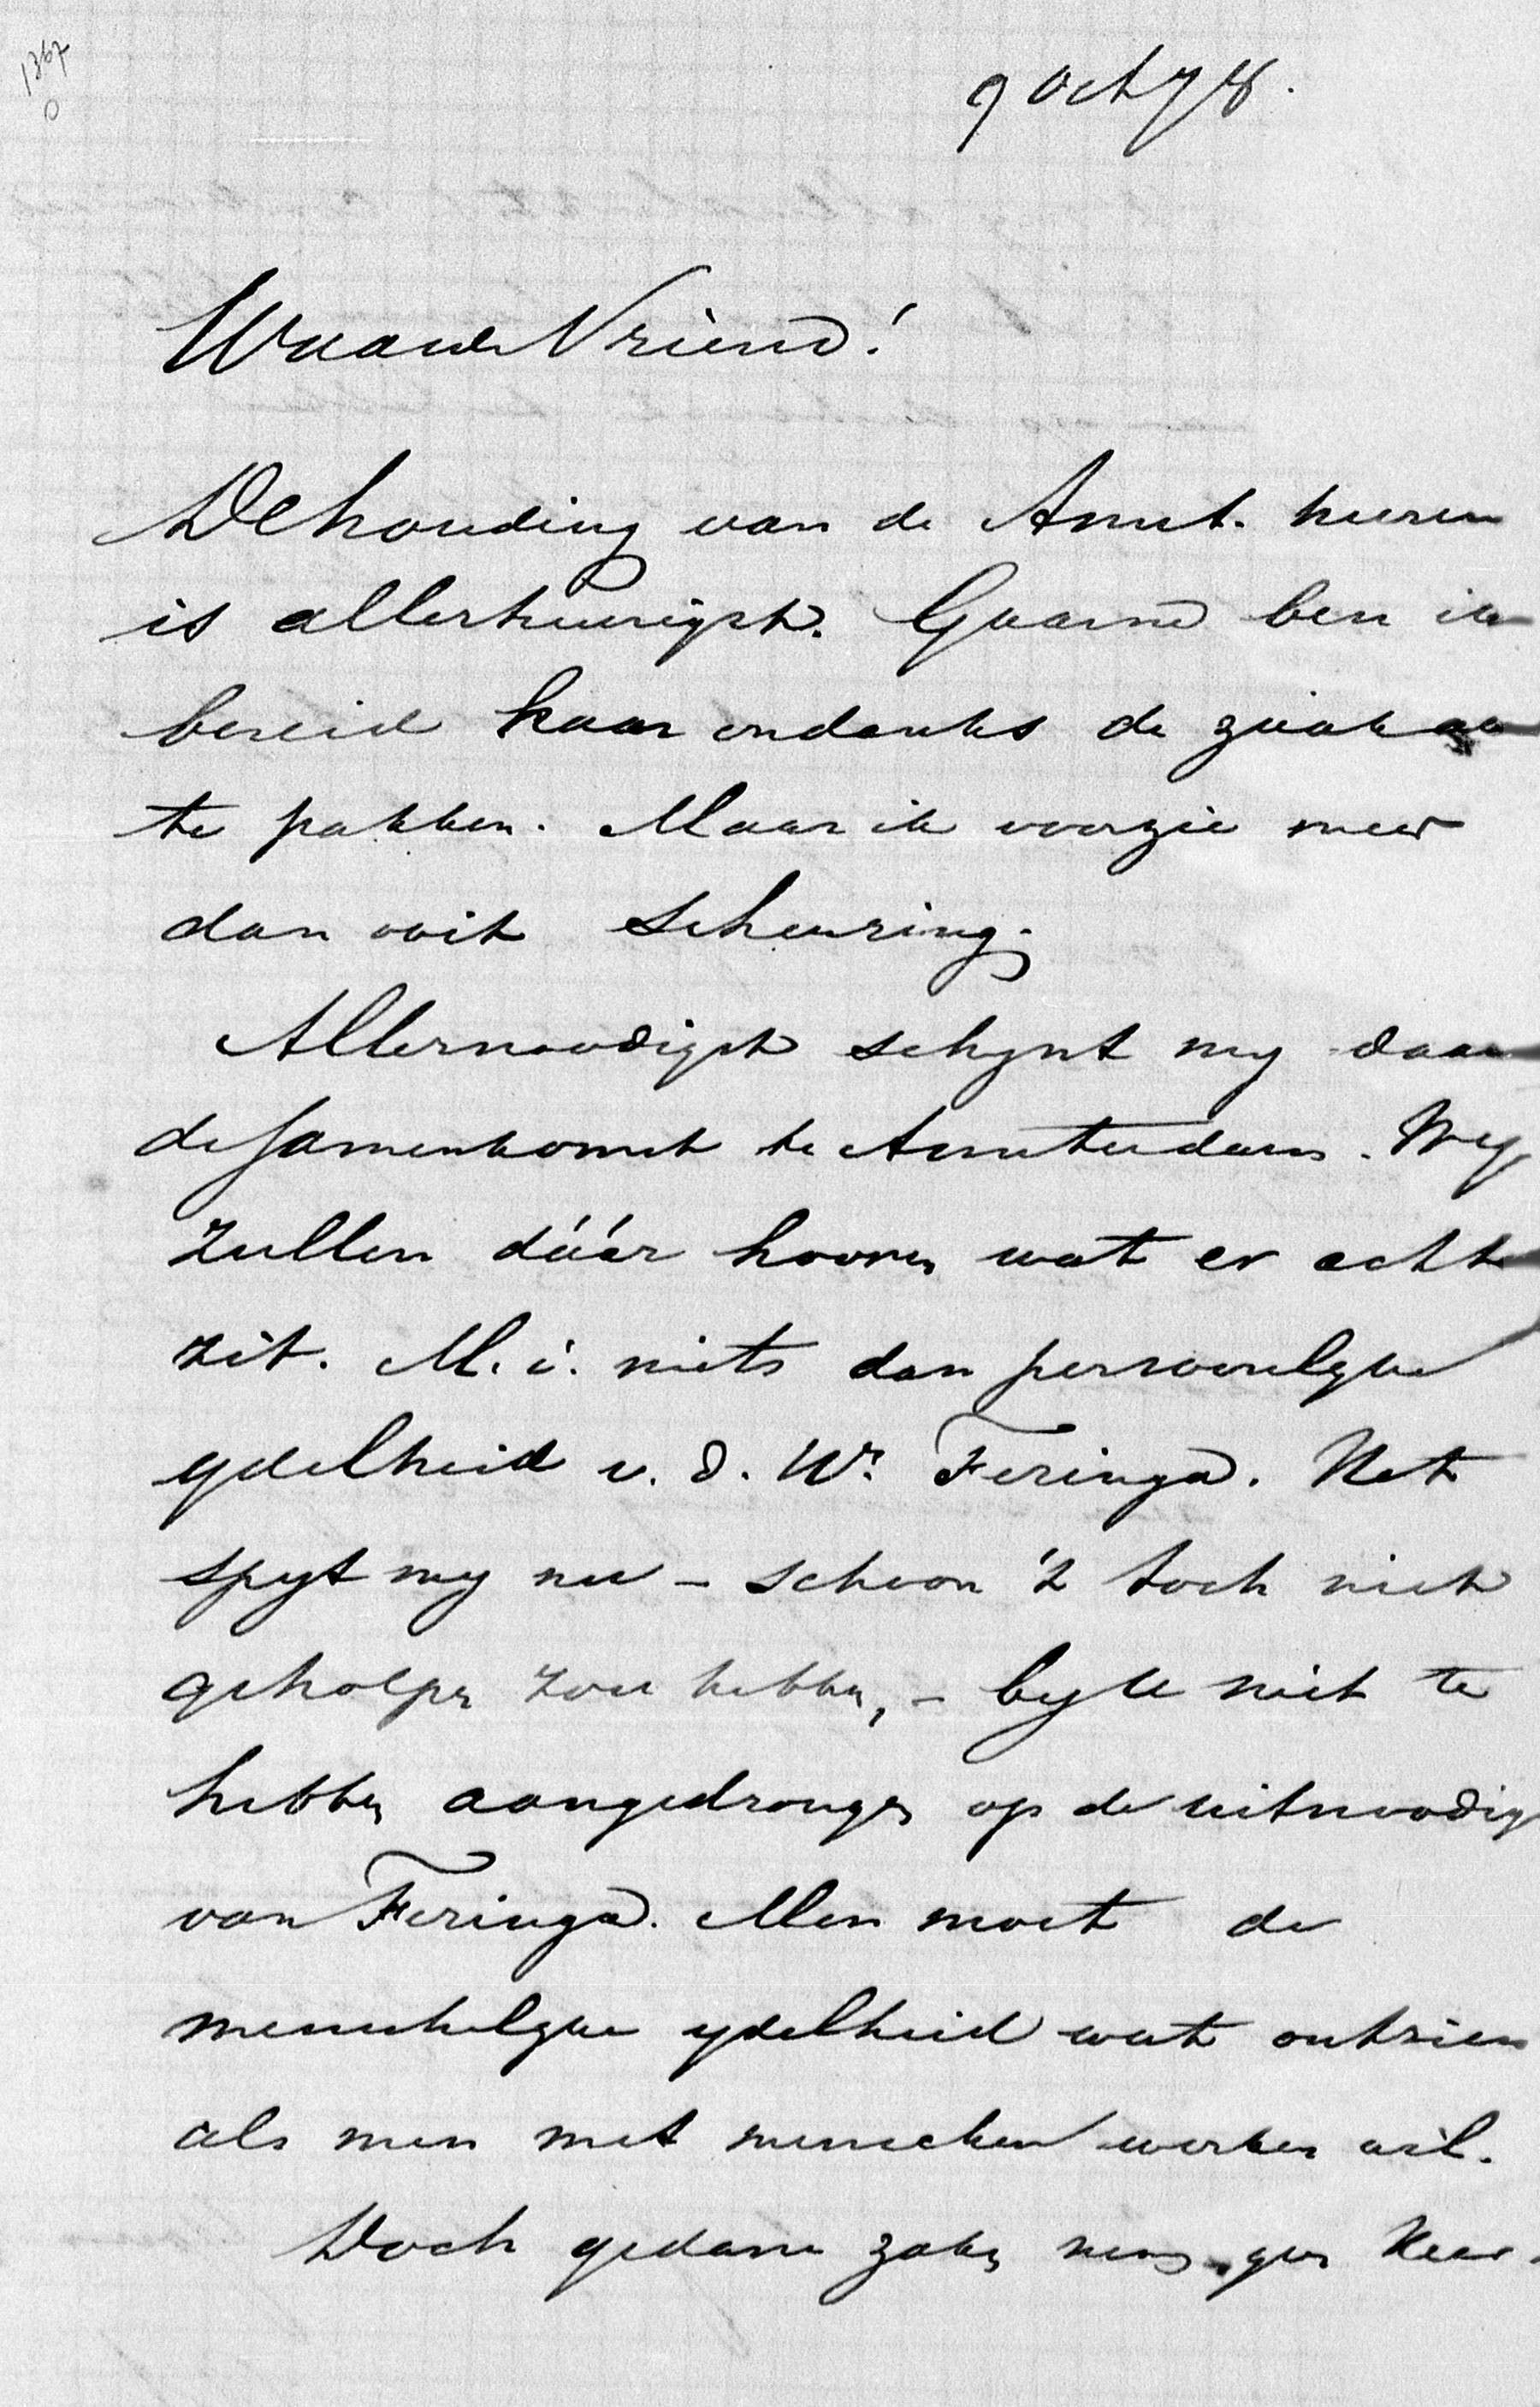 1367
0
9 Oct 78.
Waarde Vriend!
De houding van de Amst. heeren
is allertreurigst. Gaarne ben ik
bereid haar ondanks de zaak aan
te pakken. Maar ik voorzie meer
dan ooit scheuring.
Allernoodigst schijnt mij daar
de samenkomst te Amsterdam. Wij
zullen dáár hooren wat er acht
zit. M. i. niets dan persoonlijke
ijdelheid v. d. Hr. Feringa. Het
spijt mij nu – schoon 't toch niet
geholpen zou hebben, – bij U niet te
hebben aangedrongen op de uitnoodig
van Feringa. Men moet de
menschelijke ijdelheid wat ontzien
als men met menschen werken wil.
Doch gedane zaken nemen geen keer.